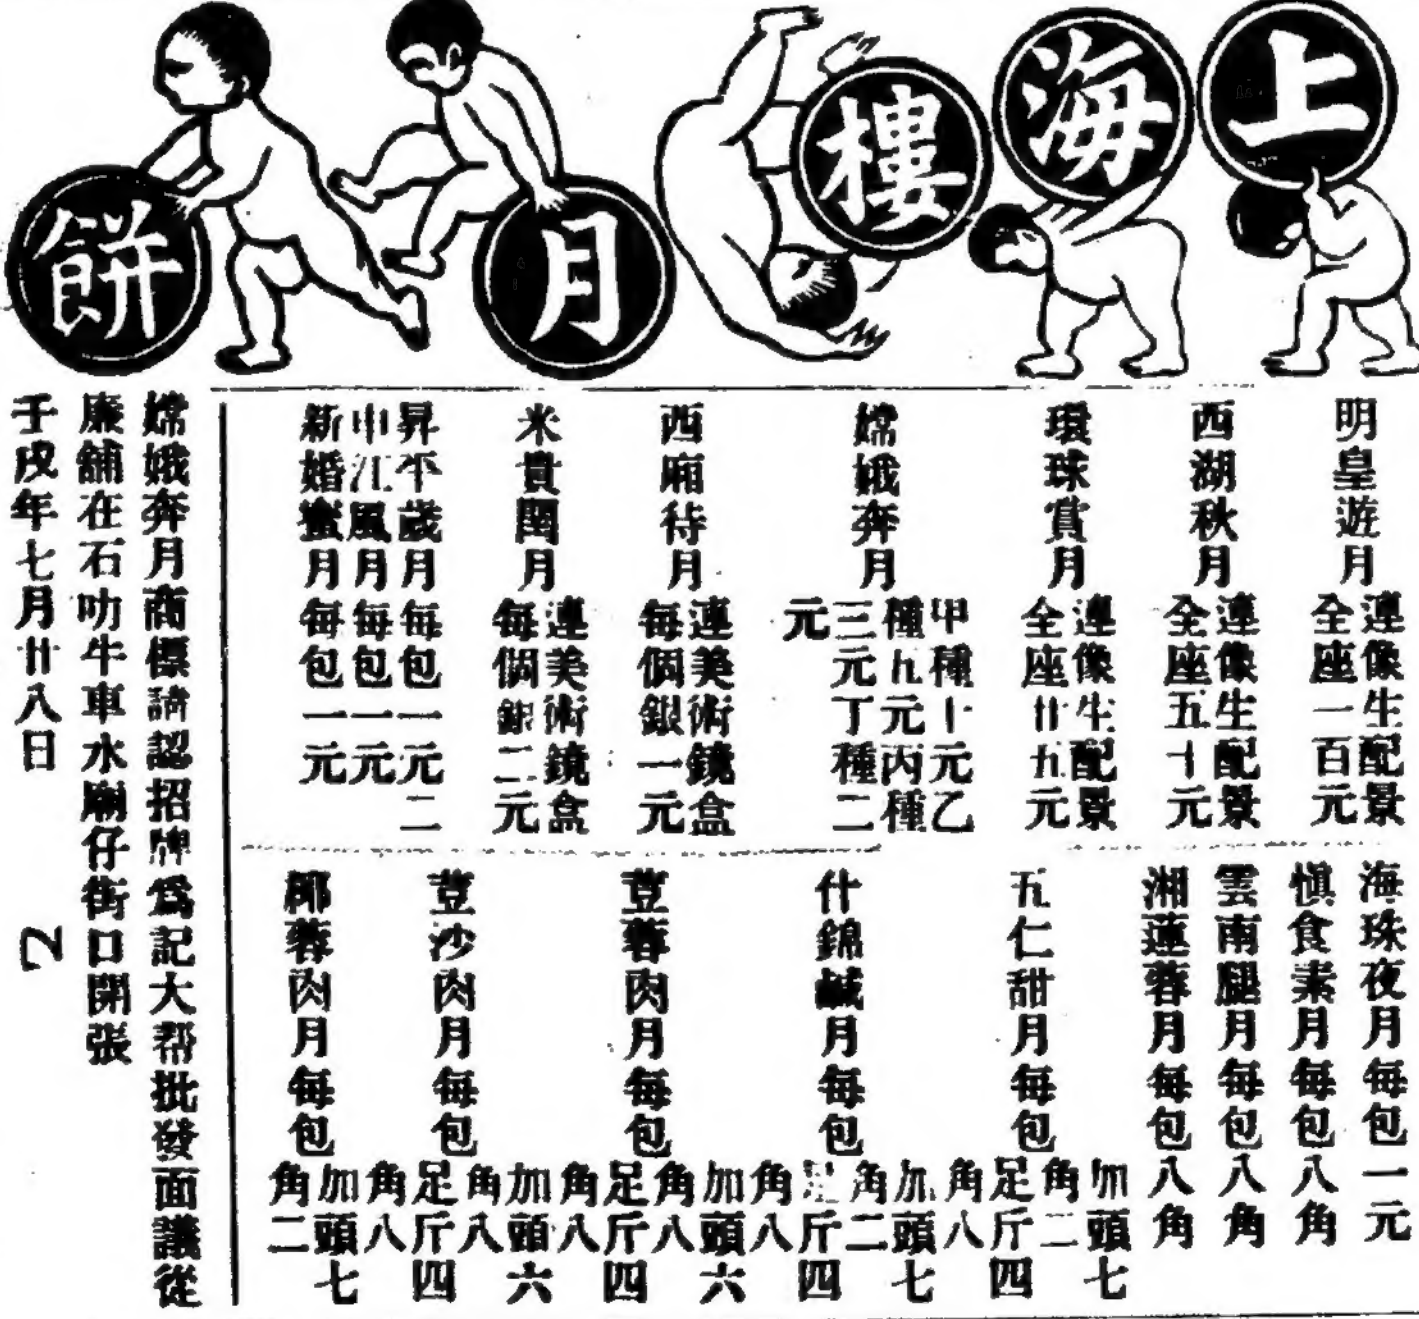 上海樓月餅
明皇遊月
連像生配景
全座一百元
西湖秋月
連像生配景
全座五十元
環球賞月
連像生配景
全座廿五元
嫦娥奔月
甲種十元乙
種五元丙種
三元丁種二
元
西廂待月
連美術鏡盒
每個銀一元
米貴閏月
連美術鏡盒
每個銀二元
昇平歲月每包一元二
申江風月每包一元
新婚蜜月每包一元
海珠夜月每包一元
慎食素月每包八角
雲南腿月每包八角
湘蓮蓉月每包八角
五仁甜月每包
加頭七
角二
足斤四
角八
什錦鹹月每包
加頭七
角二
足斤四
角八
荳蓉肉月每包
加頭六
角八
足斤四
角八
荳沙肉月每包
加頭六
角八
足斤四
角八
椰蓉肉月每包
加頭七
角二
嫦娥奔月商標請認招牌爲記大帮批發面議從
廉舖在石叻牛車水廟仔街口開張
壬戌年七月廿八日 2